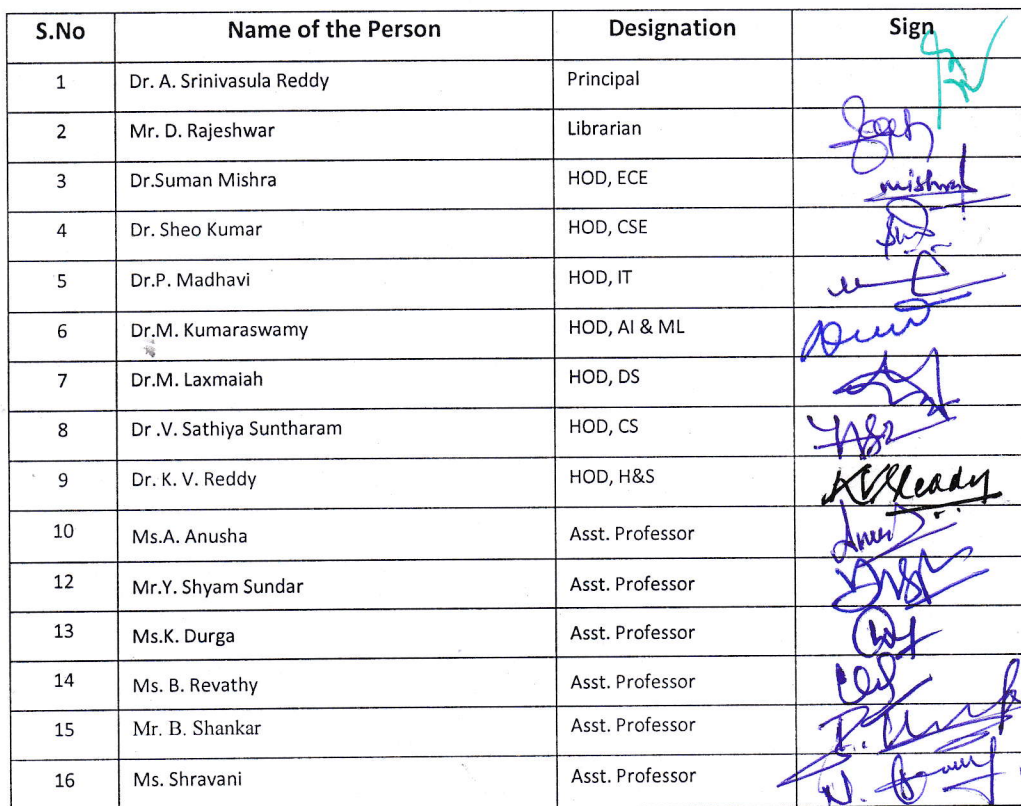 S.No Name of the Person Designation Sign
1 Dr. A. Srinivasula Reddy Principal
2 Mr. D. Rajeshwar Librarian
3 Dr.Suman Mishra HOD, ECE mishra
4 Dr. Sheo Kumar HOD, CSE
5 Dr.P. Madhavi HOD, IT
6 Dr.M. Kumaraswamy HOD, AI & ML
7 Dr.M. Laxmaiah HOD, DS
8 Dr .V. Sathiya Suntharam HOD, CS
9 Dr. K. V. Reddy HOD, H&S
10 Ms.A. Anusha Asst. Professor
12 Mr.Y. Shyam Sundar Asst. Professor
13 Ms.K. Durga Asst. Professor
14 Ms. B. Revathy Asst. Professor
15 Mr. B. Shankar Asst. Professor
16 Ms. Shravani Asst. Professor